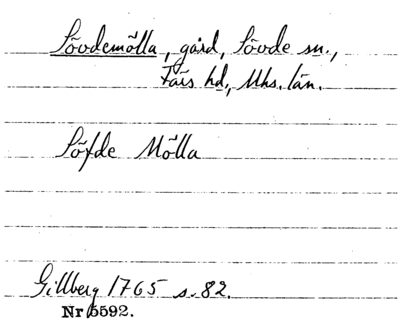 Sövdemölla, gård, Sövde sn.,
Färs hd, Mhs. län.
Söfde Mölla
Gillberg 1765 s. 82.
Nr 5592.